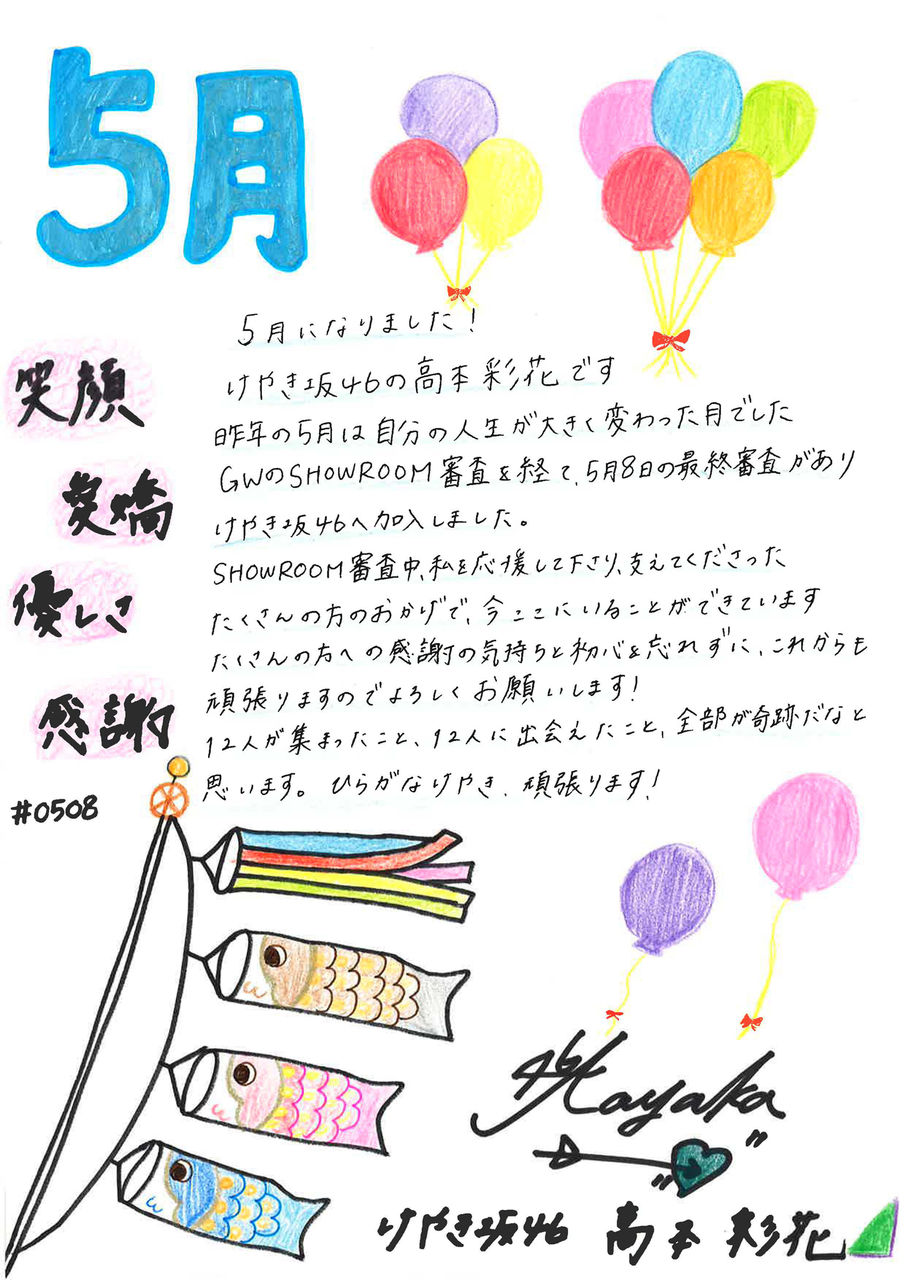 5月
5月になりました！
けやき坂46の高本彩花です
昨年の5月は自分の人生が大きく変わった月でした
GWのSHOWROOM審査を経て、5月8日の最終審査があり
けやき坂46へ加入しました。
SHOWROOM審査中、私を応援して下さり、支えてくださった
たくさんの方のおかげで、今ここにいることができています
たくさんの方への感謝の気持ちと初心を忘れずに、これからも
頑張りますのでよろしくお願いします！
12人が集まったこと、12人に出会えたこと、全部が奇跡だなと
思います。ひらがなけやき、頑張ります！
笑顔
愛嬌
優しさ
感謝
#0508
Ayaka
けやき坂46 高本彩花